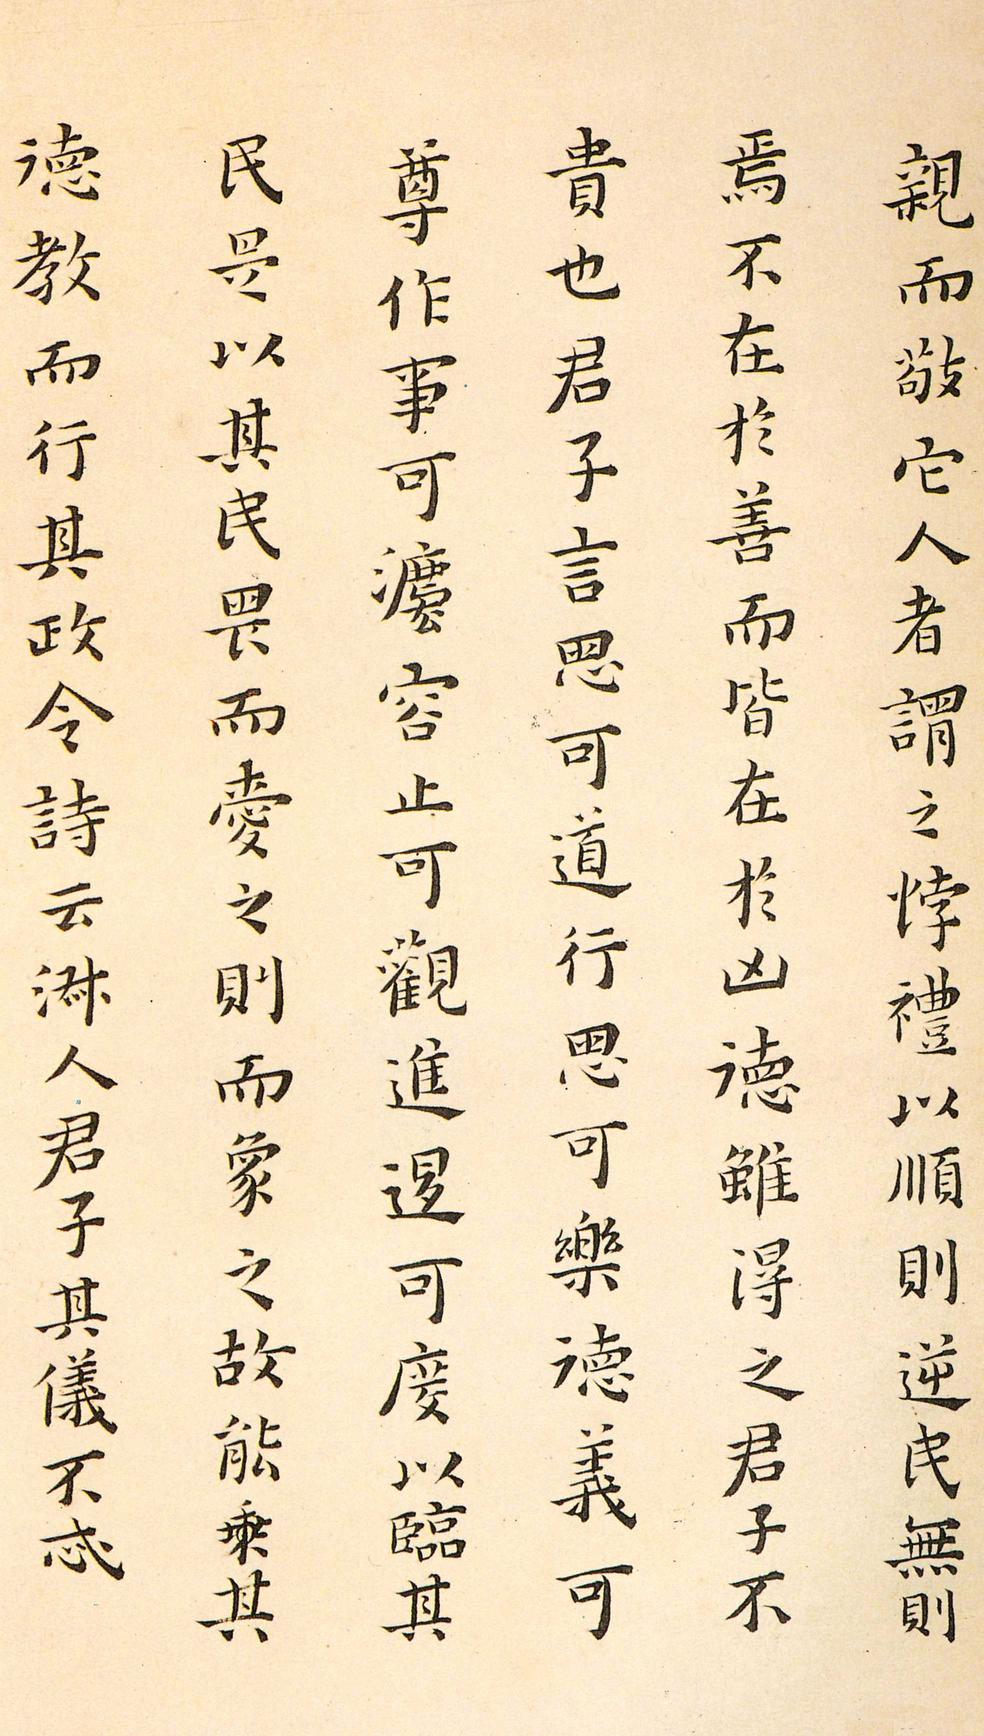 親而敬它人者謂之悖禮以順則逆民無則
焉不在於善而皆在於凶德雖得之君子不
貴也君子言思可道行思可樂德義可
尊作事可灋容止可觀進退可度以臨其
民是以其民畏而愛之則而象之故能乗其
德教而行其政令詩云淋人君子其儀不忒